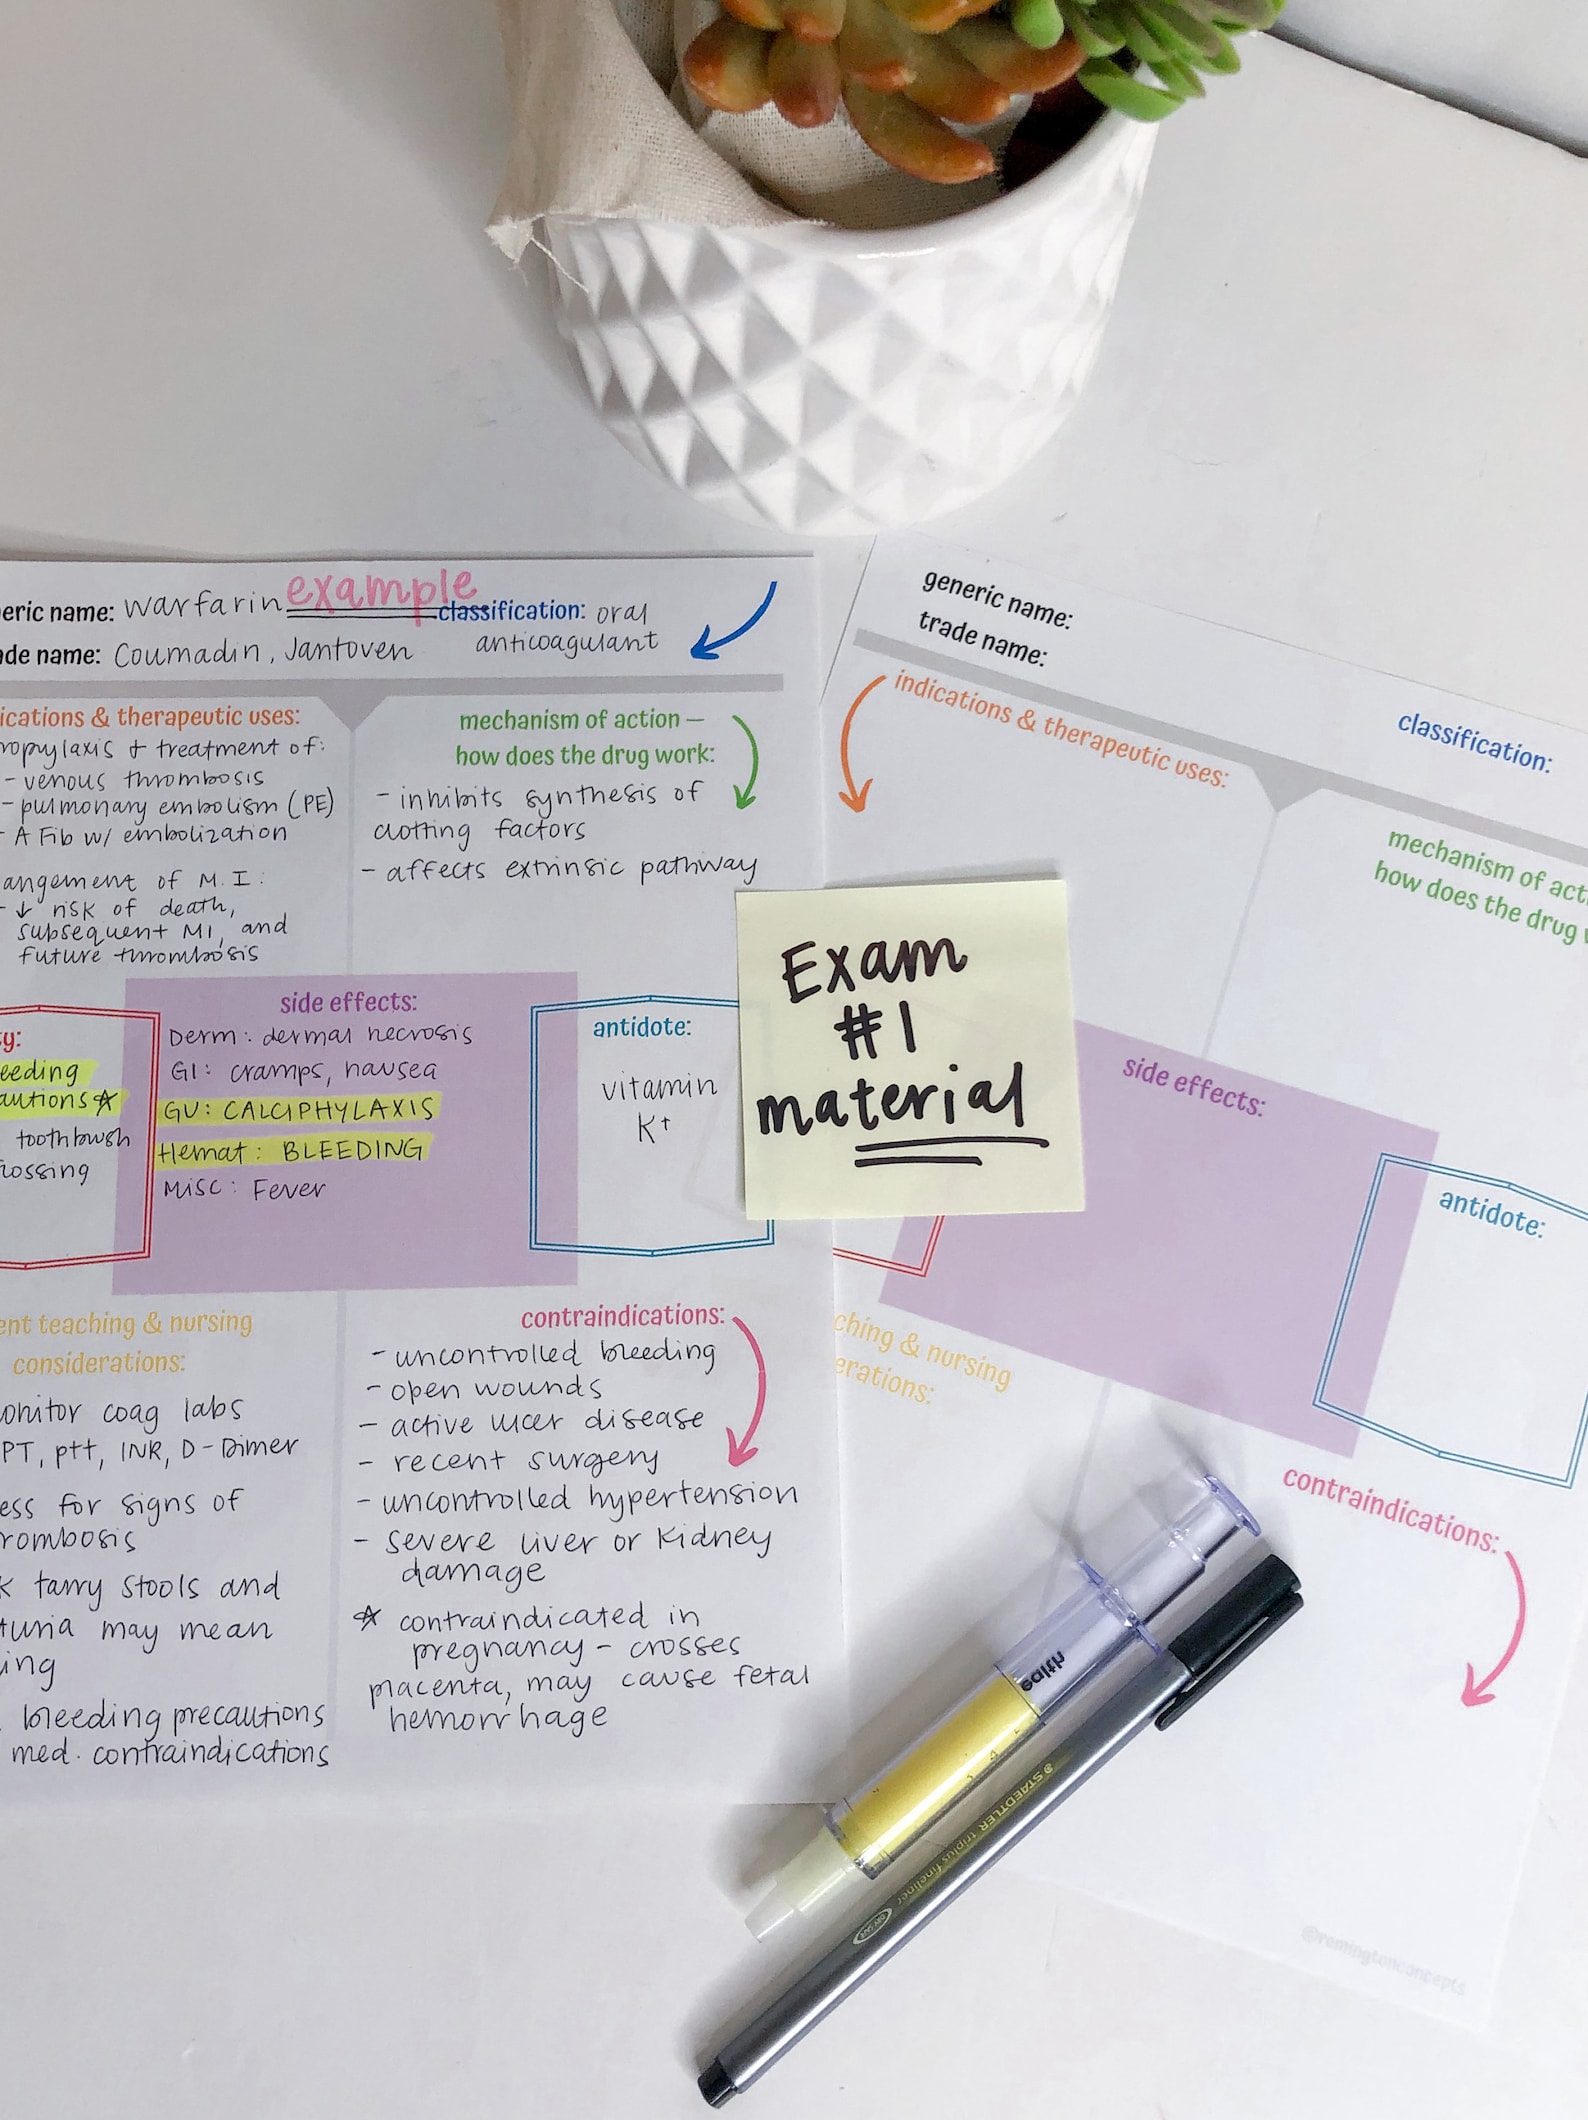 eric name: warfarin example classification: oral
anticoagulant
ade name: Coumadin, Jantoven
ications & therapeutic uses:
rophylaxis & treatment of:
- venous thrombosis
- pulmonary embolism (PE)
- A Fib w/ embolization
angement of M.I:
- ↓ risk of death,
subsequent MI, and
future thrombosis
mechanism of action –
how does the drug work:
- inhibits synthesis of
clotting factors
- affects extrinsic pathway
ty:
eeding
autions☆
toothbrush
lossing
side effects:
Derm: dermal necrosis
GI: cramps, nausea
GU: CALCIPHYLAXIS
Hemat: BLEEDING
Misc: Fever
antidote:
vitamin
K+
ent teaching & nursing
considerations:
onitor coag labs
PT, ptt, INR, D-Dimer
ess for signs of
rombosis
k tarry stools and
turia may mean
ing
bleeding precautions
med. contraindications
contraindications:
- uncontrolled bleeding
- open wounds
- active ulcer disease
- recent surgery
- uncontrolled hypertension
- severe liver or kidney
damage
☆ contraindicated in
pregnancy - crosses
placenta, may cause fetal
hemorrhage
Exam
#1
material
generic name:
trade name:
classification:
indications & therapeutic uses:
mechanism of act
how does the drug
side effects:
antidote:
ching & nursing
erations:
contraindications:
ealth
STAEDTLER triplus fineliner
DRY SAFE
@remingtonconcepts